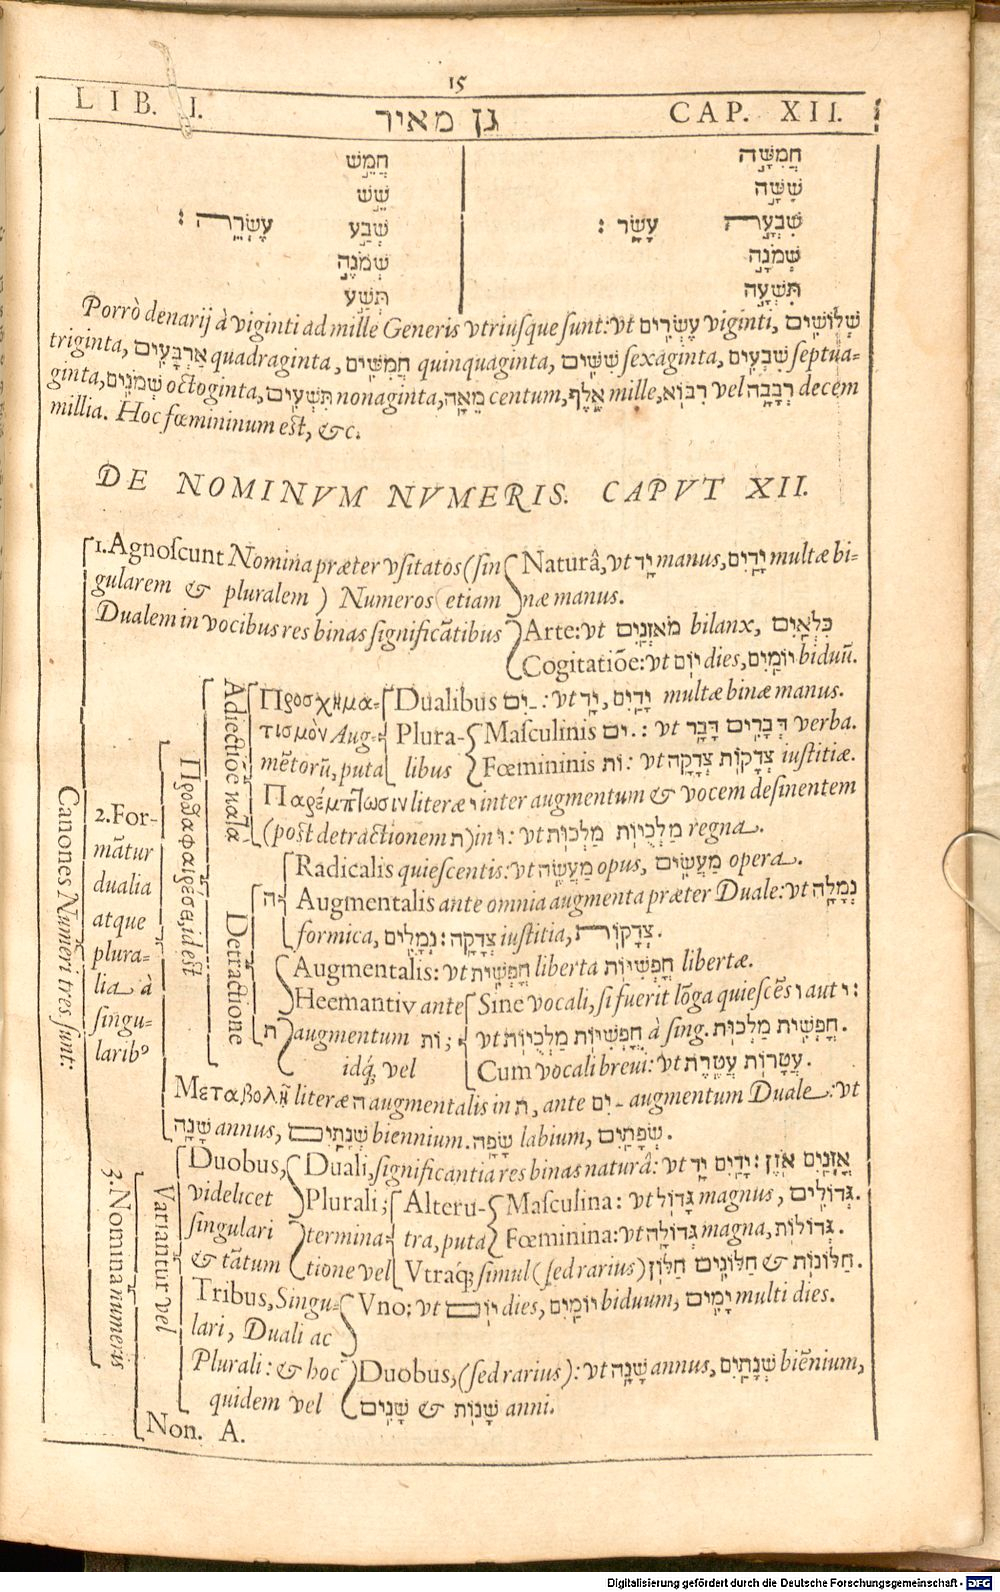 15
LIB. I. גן מאיר CAP. XII.
חֲמִשָּׁה
שִׁשָּׁה
שִׁבְעָה עָשָׂר :
שְׁמֹנָה
תִּשְׁעָה
חֲמֵשׁ
שֵׁשׁ
שְׁבַע עֶשְׂרֵה :
שְׁמֹנֶה
תְּשַׁע
Porrò denarij à viginti ad mille Generis vtriusque sunt: vt עֶשְׂרִים viginti, שְׁלוֹשִׁים
triginta, אַרְבָּעִים quadraginta, חֲמִשִּׁים quinquaginta, שִׁשִּׁים sexaginta, שִׁבְעִים septua-
ginta, שְׁמֹנִים octoginta, תִּשְׁעִים nonaginta, מֵאָה centum, אֶלֶף mille, רִבּוֹא vel רְבָבָה decem
millia. Hoc fœmininum est, &c.
DE NOMINVM NVMERIS. CAPVT XII.
Canones Numeri tres sunt:
1. Agnoscunt Nomina præter vsitatos (sin
gularem & pluralem) Numeros etiam
Dualem in vocibus res binas significãtibus
Naturâ, vt יָד manus, יָדַיִם multæ bi-
næ manus.
Arte: vt מֹאזְנַיִם bilanx, כִּלְאַיִם
Cogitatiõe: vt יוֹם dies, יוֹמַיִם biduũ.
2. For-
mãtur
dualia
atque
plura-
lia à
singu-
laribꝰ
Προσθαφαιρέσει, id est
Adiectiõe κατὰ
Προσχημα-
τισμὸν Aug-
mẽtorũ, puta
Dualibus ־ַיִם : vt יָד, יָדַיִם multæ binæ manus.
Plura-
libus
Masculinis ־ִים : vt דָּבָר דְּבָרִים verba.
Fœmininis וֹת : vt צְדָקָה צְדָקוֹת iustitiæ.
Παρέμπτωσιν literæ י inter augmentum & vocem desinentem
(post detractionem ת) in וּ : vt מַלְכוּת מַלְכֻיּוֹת regna.
Detractione
ה
Radicalis quiescentis: vt מַעֲשֶׂה opus, מַעֲשִׂים opera.
Augmentalis ante omnia augmenta præter Duale: vt נְמָלָה
formica, נְמָלִים : צְדָקָה iustitia, צְדָקוֹת.
ת
Augmentalis: vt חָפְשִׁית liberta חָפְשִׁיּוֹת libertæ.
Heemantiv ante
augmentum וֹת ;
idq́; vel
Sine vocali, si fuerit lõga quiescẽs ו aut י :
vt מַלְכֻיּוֹת חָפְשִׁיּוֹת à sing. מַלְכוּת חָפְשִׁית.
Cum vocali breui: vt עֲטֶרֶת עֲטָרוֹת.
Μεταβολῇ literæ ה augmentalis in ת, ante ־ַיִם augmentum Duale: vt
שָׁנָה annus, שְׁנָתַיִם biennium. שָׂפָה labium, שְׂפָתַיִם.
3. Nomina numeris
Variantur vel
Duobus,
videlicet
singulari
& tãtum
Duali, significantia res binas naturâ: vt יָד יָדַיִם : אֹזֶן אָזְנַיִם
Plurali;
termina-
tione vel
Alteru-
tra, puta
Masculina: vt גָּדוֹל magnus, גְּדוֹלִים.
Fœminina: vt גְּדוֹלָה magna, גְּדוֹלוֹת.
Vtraq́; simul (sed rarius) חַלּוֹן חַלּוֹנִים & חַלּוֹנוֹת.
Tribus, Singu-
lari, Duali ac
Plurali: & hoc
quidem vel
Vno: vt יוֹם dies, יוֹמַיִם biduum, יָמִים multi dies.
Duobus, (sed rarius): vt שָׁנָה annus, שְׁנָתַיִם biẽnium,
שָׁנִים & שָׁנוֹת anni.
Non. A.
Digitalisierung gefördert durch die Deutsche Forschungsgemeinschaft - DFG